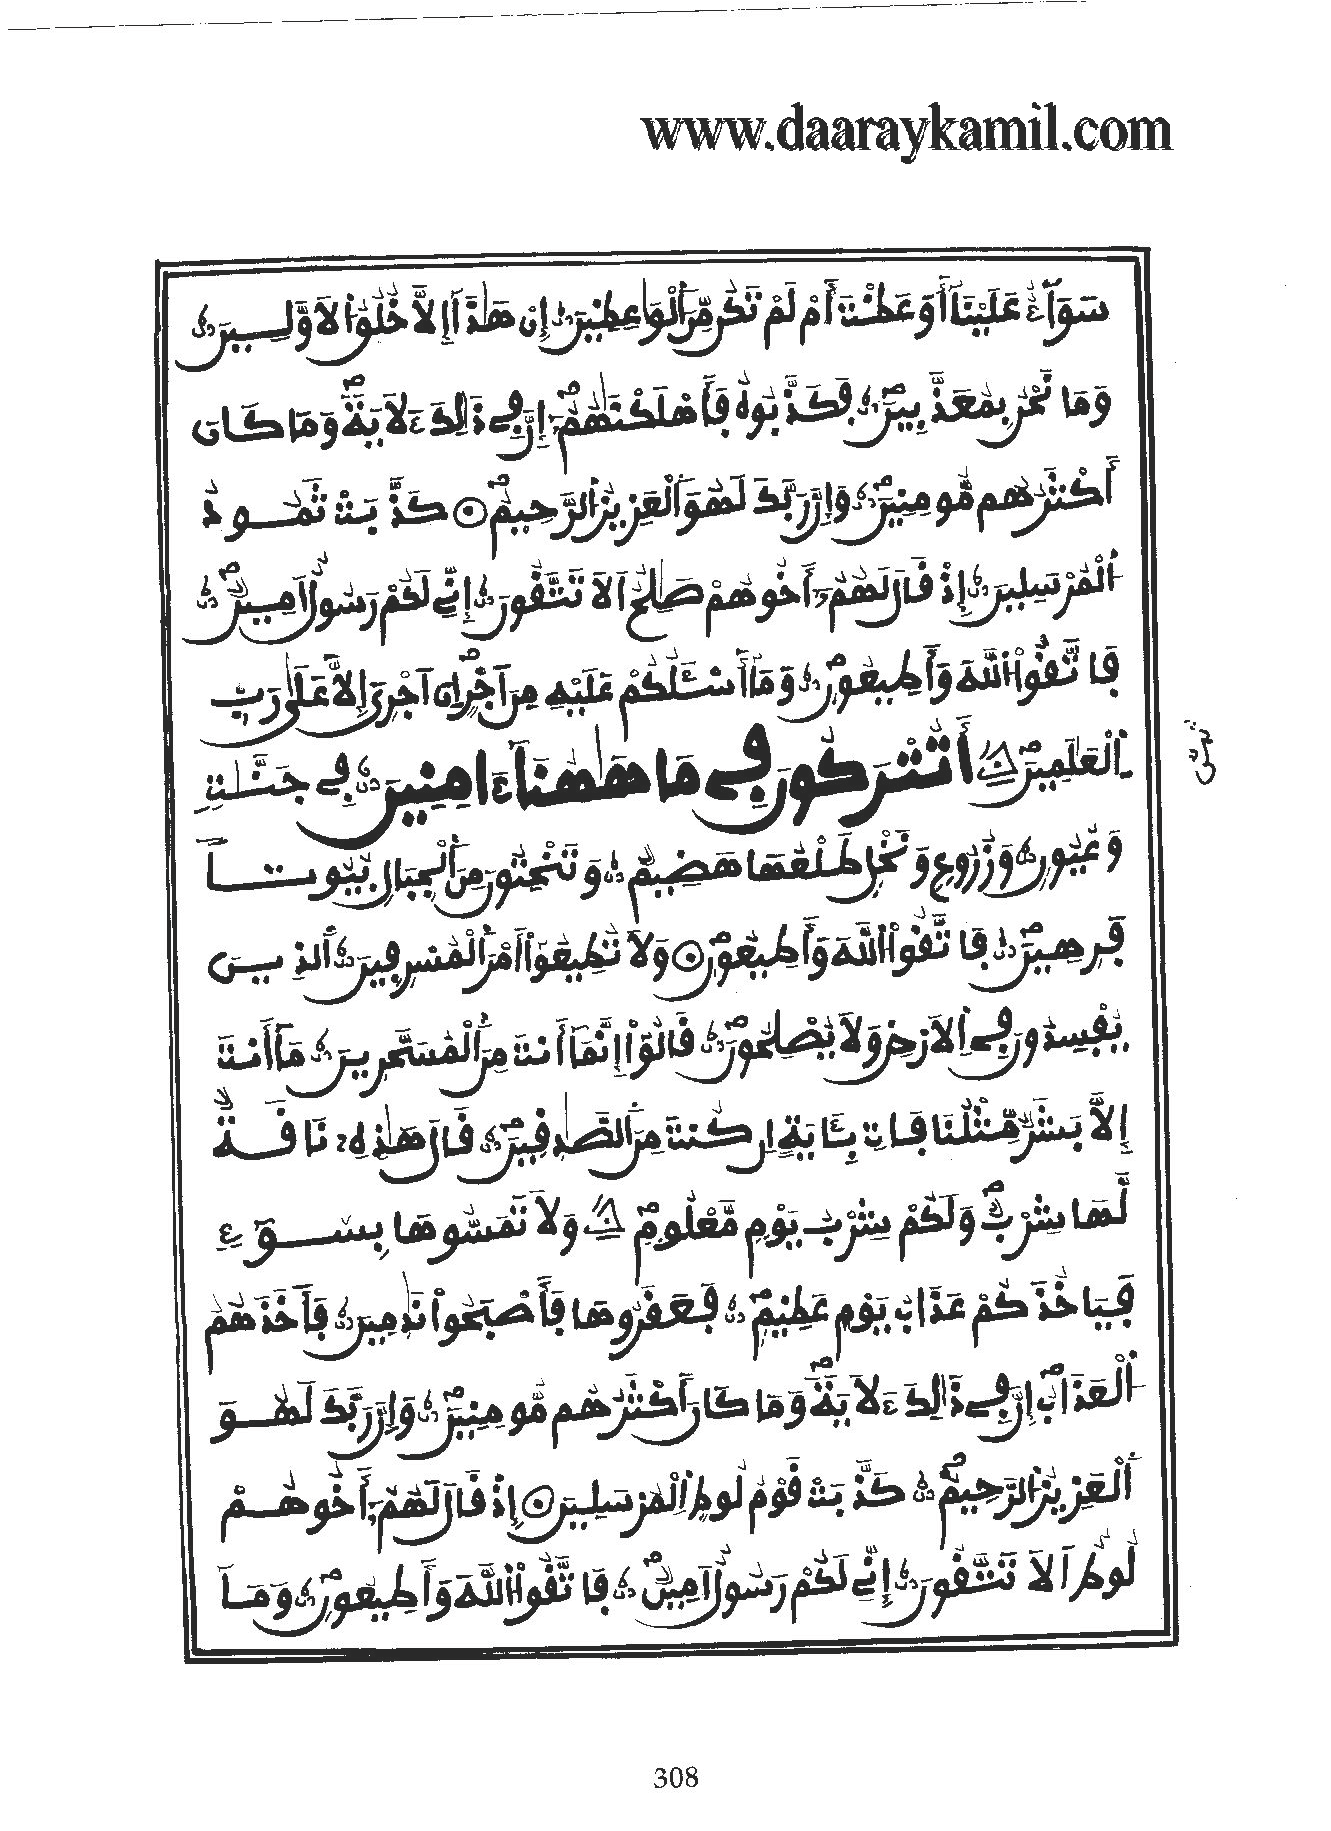 www.daaraykamil.com
سَوَآءٌ عَلَيْنَآ أَوَعَظْتَ أَمْ لَمْ تَكُن مِّنَ ٱلْوَٰعِظِينَ إِنْ هَٰذَآ إِلَّا خُلُقُ ٱلَاوَّلِيـنَ
وَمَا نَحْنُ بِمُعَذَّبِينَ فَكَذَّبُوهُ فَأَهْلَكْنَٰهُمُۥٓ إِنَّ فِے ذَٰلِكَ ءَلَايَةٗ وَمَا كَانَ
أَكْثَرُهُم مُّومِنِينَ وَإِنَّ رَبَّكَ لَهُوَ ٱلْعَزِيزُ ٱلرَّحِيمُ كَذَّبَتْ ثَمُـودُ
ٱلْمُرْسَلِينَ إِذْ قَالَ لَهُمُۥٓ أَخُوهُمْ صَٰلِحٌ اَلَا تَتَّقُونَ إِنِّے لَكُمْ رَسُولٌ اَمِينٌ
فَاتَّقُوا۟ ٱللَّهَ وَأَطِيعُونِ وَمَآ أَسْـَٔلُكُمْ عَلَيْهِ مِنَ اَجْرٍ اِنَ اَجْرِىَ إِلَّا عَلَىٰ رَبِّ
ٱلْعَٰلَمِينَ أَتُتْرَكُونَ فِے مَا هَٰهُنَآ ءَامِنِينَ فِے جَنَّٰتٖ
وَعُيُونٖ وَزُرُوعٖ وَنَخْلٖ طَلْعُهَا هَضِيمٌ وَتَنْحِتُونَ مِنَ ٱلْجِبَالِ بُيُوتـاٗ
فَرِهِينَ فَاتَّقُوا۟ ٱللَّهَ وَأَطِيعُونِ وَلَا تُطِيعُوٓا۟ أَمْرَ ٱلْمُسْرِفِينَ ٱلذِيـنَ
يُفْسِدُونَ فِے ٱلَارْضِ وَلَا يُصْلِحُونَ قَالُوٓا۟ إِنَّمَآ أَنتَ مِنَ ٱلْمُسَحَّرِينَ مَآ أَنتَ
إِلَّا بَشَرٌ مِّثْلُنَا فَاتِ بِـَٔايَةٍ اِن كُنتَ مِنَ ٱلصَّٰدِقِينَ قَالَ هَٰذِهِۦ نَاقَـةٌ
لَّهَا شِرْبٌ وَلَكُمْ شِرْبُ يَوْمٖ مَّعْلُومٖ وَلَا تَمَسُّوهَا بِسُـوٓءٖ
فَيَاخُذَكُمْ عَذَابُ يَوْمٍ عَظِيمٖ فَعَقَرُوهَا فَأَصْبَحُوا۟ نَٰدِمِينَ فَأَخَذَهُمُ
ٱلْعَذَابُ إِنَّ فِے ذَٰلِكَ ءَلَايَةٗ وَمَا كَانَ أَكْثَرُهُم مُّومِنِينَ وَإِنَّ رَبَّكَ لَهُـوَ
ٱلْعَزِيزُ ٱلرَّحِيمُ كَذَّبَتْ قَوْمُ لُوطٍ ٱلْمُرْسَلِينَ إِذْ قَالَ لَهُمُۥٓ أَخُوهُـمْ
لُوطٌ اَلَا تَتَّقُونَ إِنِّے لَكُمْ رَسُولٌ اَمِينٌ فَاتَّقُوا۟ ٱللَّهَ وَأَطِيعُونِ وَمَـآ
308